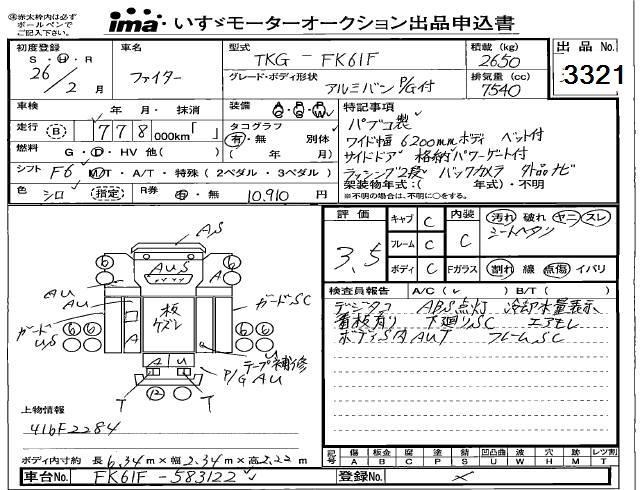 ※赤太枠内は必ず
ボールペンで
ご記入下さい。
ima いすゞモーターオークション出品申込書
初度登録 S・H・R 26/2月
車名 ファイター
型式 TKG - FK61F
積載(kg) 2650
出品No. 3321
グレード・ボディ形状 アルミバン P/G付
排気量(cc) 7540
車検 年 月・抹消
装備 A/C P/S P/W
特記事項
走行 B 778000km「 」
タコグラフ 有・無 別体
( 年 月)
パブコ製
ワイド幅 6200mmボディ ベット付
燃料 G・D・HV 他( )
サイドドア 格納パワーゲート付
シフト F6 M/T・A/T・特殊(2ペダル・3ペダル)
ラッシング2段 バックカメラ 外品ナビ
架装物年式:( 年式)・不明
※不明の場合は、不明に○をする。
色 シロ 指定 R券 有・無 10,910円
評価 3.5
キャブ C
フレーム C
ボディ C
内装 C
Fガラス
汚れ 破れ ヤニ スレ
シートヘタリ
割れ 線 点傷 イバリ
検査員報告 A/C(✓) B/T( )
デジタコ ABS点灯 冷却水量表示
看板有り 下廻りSC エアモレ
ボディSAAUT フレームSC
AS
AUS
AU
AU
板ケズレ
A
ガードUS
ガードSC
A U
テープ補修
P/G AU
T
T
6
6
6 6
6 6
12
上物情報
416F2284
ボディ内寸約 長6.34m×幅2.34m×高2.22m
記号 傷A 板金B 腐C 塗P 錆S 凹凸曲U 波W 穴H 跡M レツ割T
車台No. FK61F-583122
登録No.